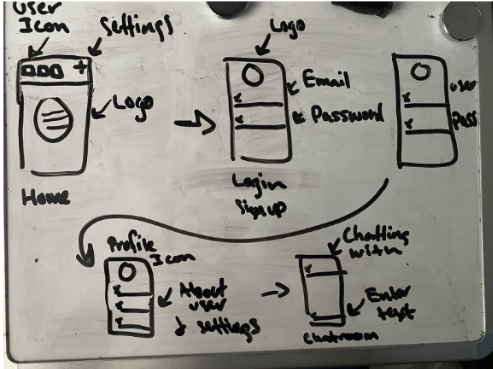 User
Icon
Settings
Logo
Home
Logo
Email
Password
Login
Sign up
user
Pass
Profile
Icon
About
user
settings
Chatting
with
Enter
text
Chatroom